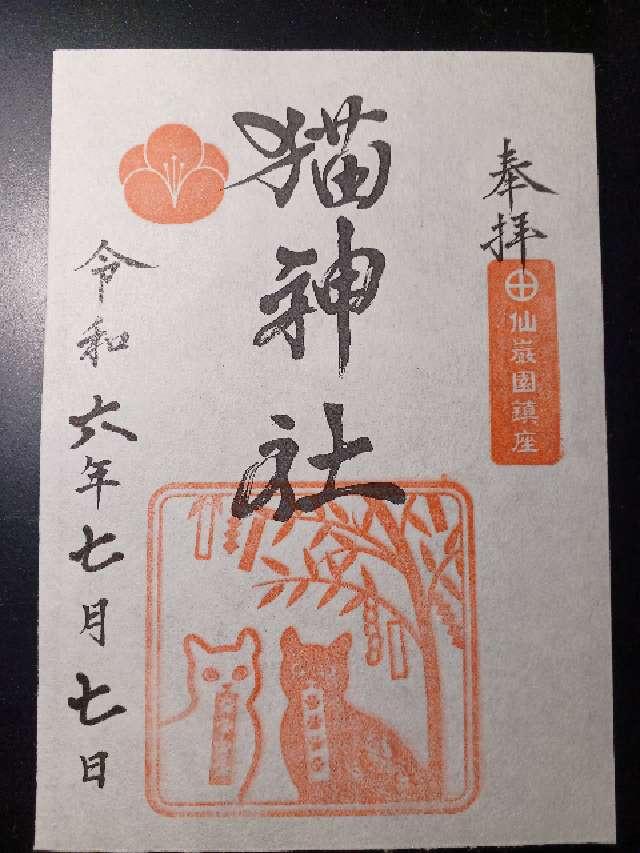 奉拝
仙巌園鎮座
猫神社
令和六年七月七日